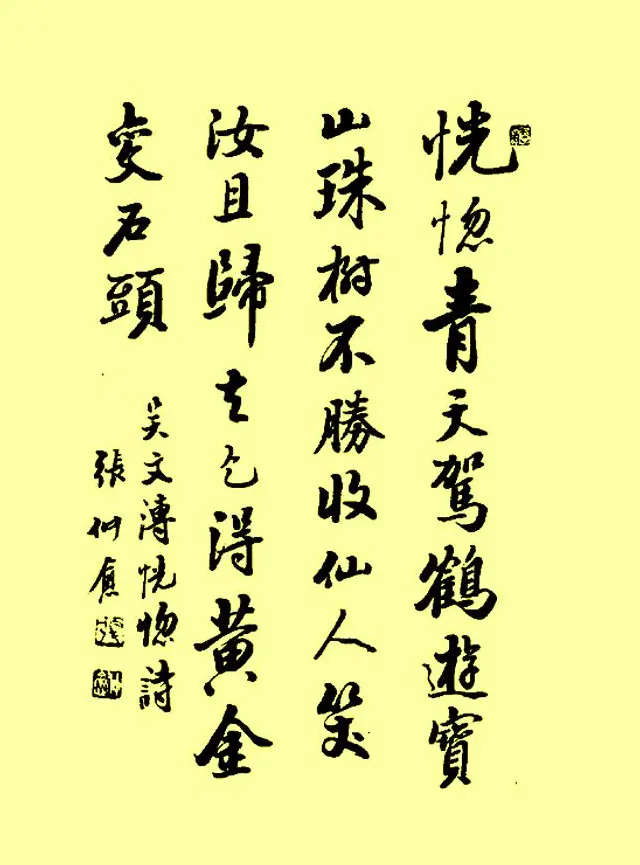 恍惚青天駕鶴遊寶
山珠樹不勝收仙人笑
汝且歸去乞得黃金
变石頭
吳文溥恍惚詩
張仲愈